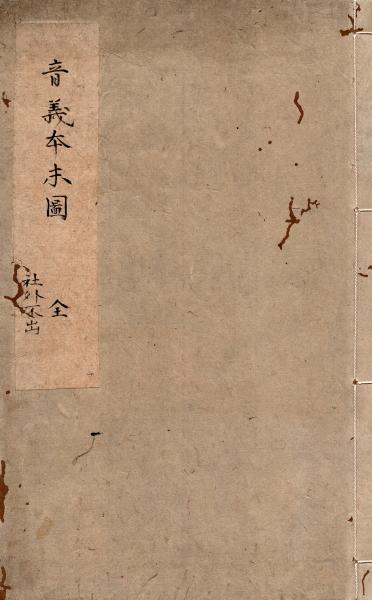 音義本末圖
全
社外不出